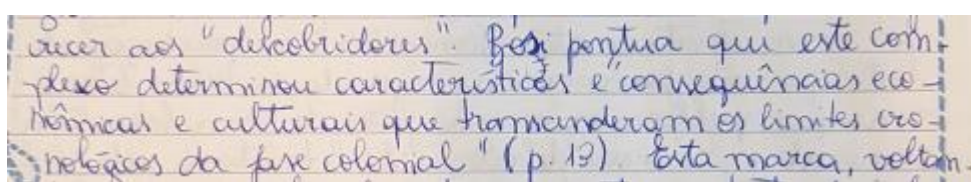 recer aos "descobridores". Bosi pontua que este com-
plexo determinou características e "consequências eco-
nômicas e culturais que transcenderam os limites cro-
nológicos da fase colonial" (p. 13). Esta marca, voltam